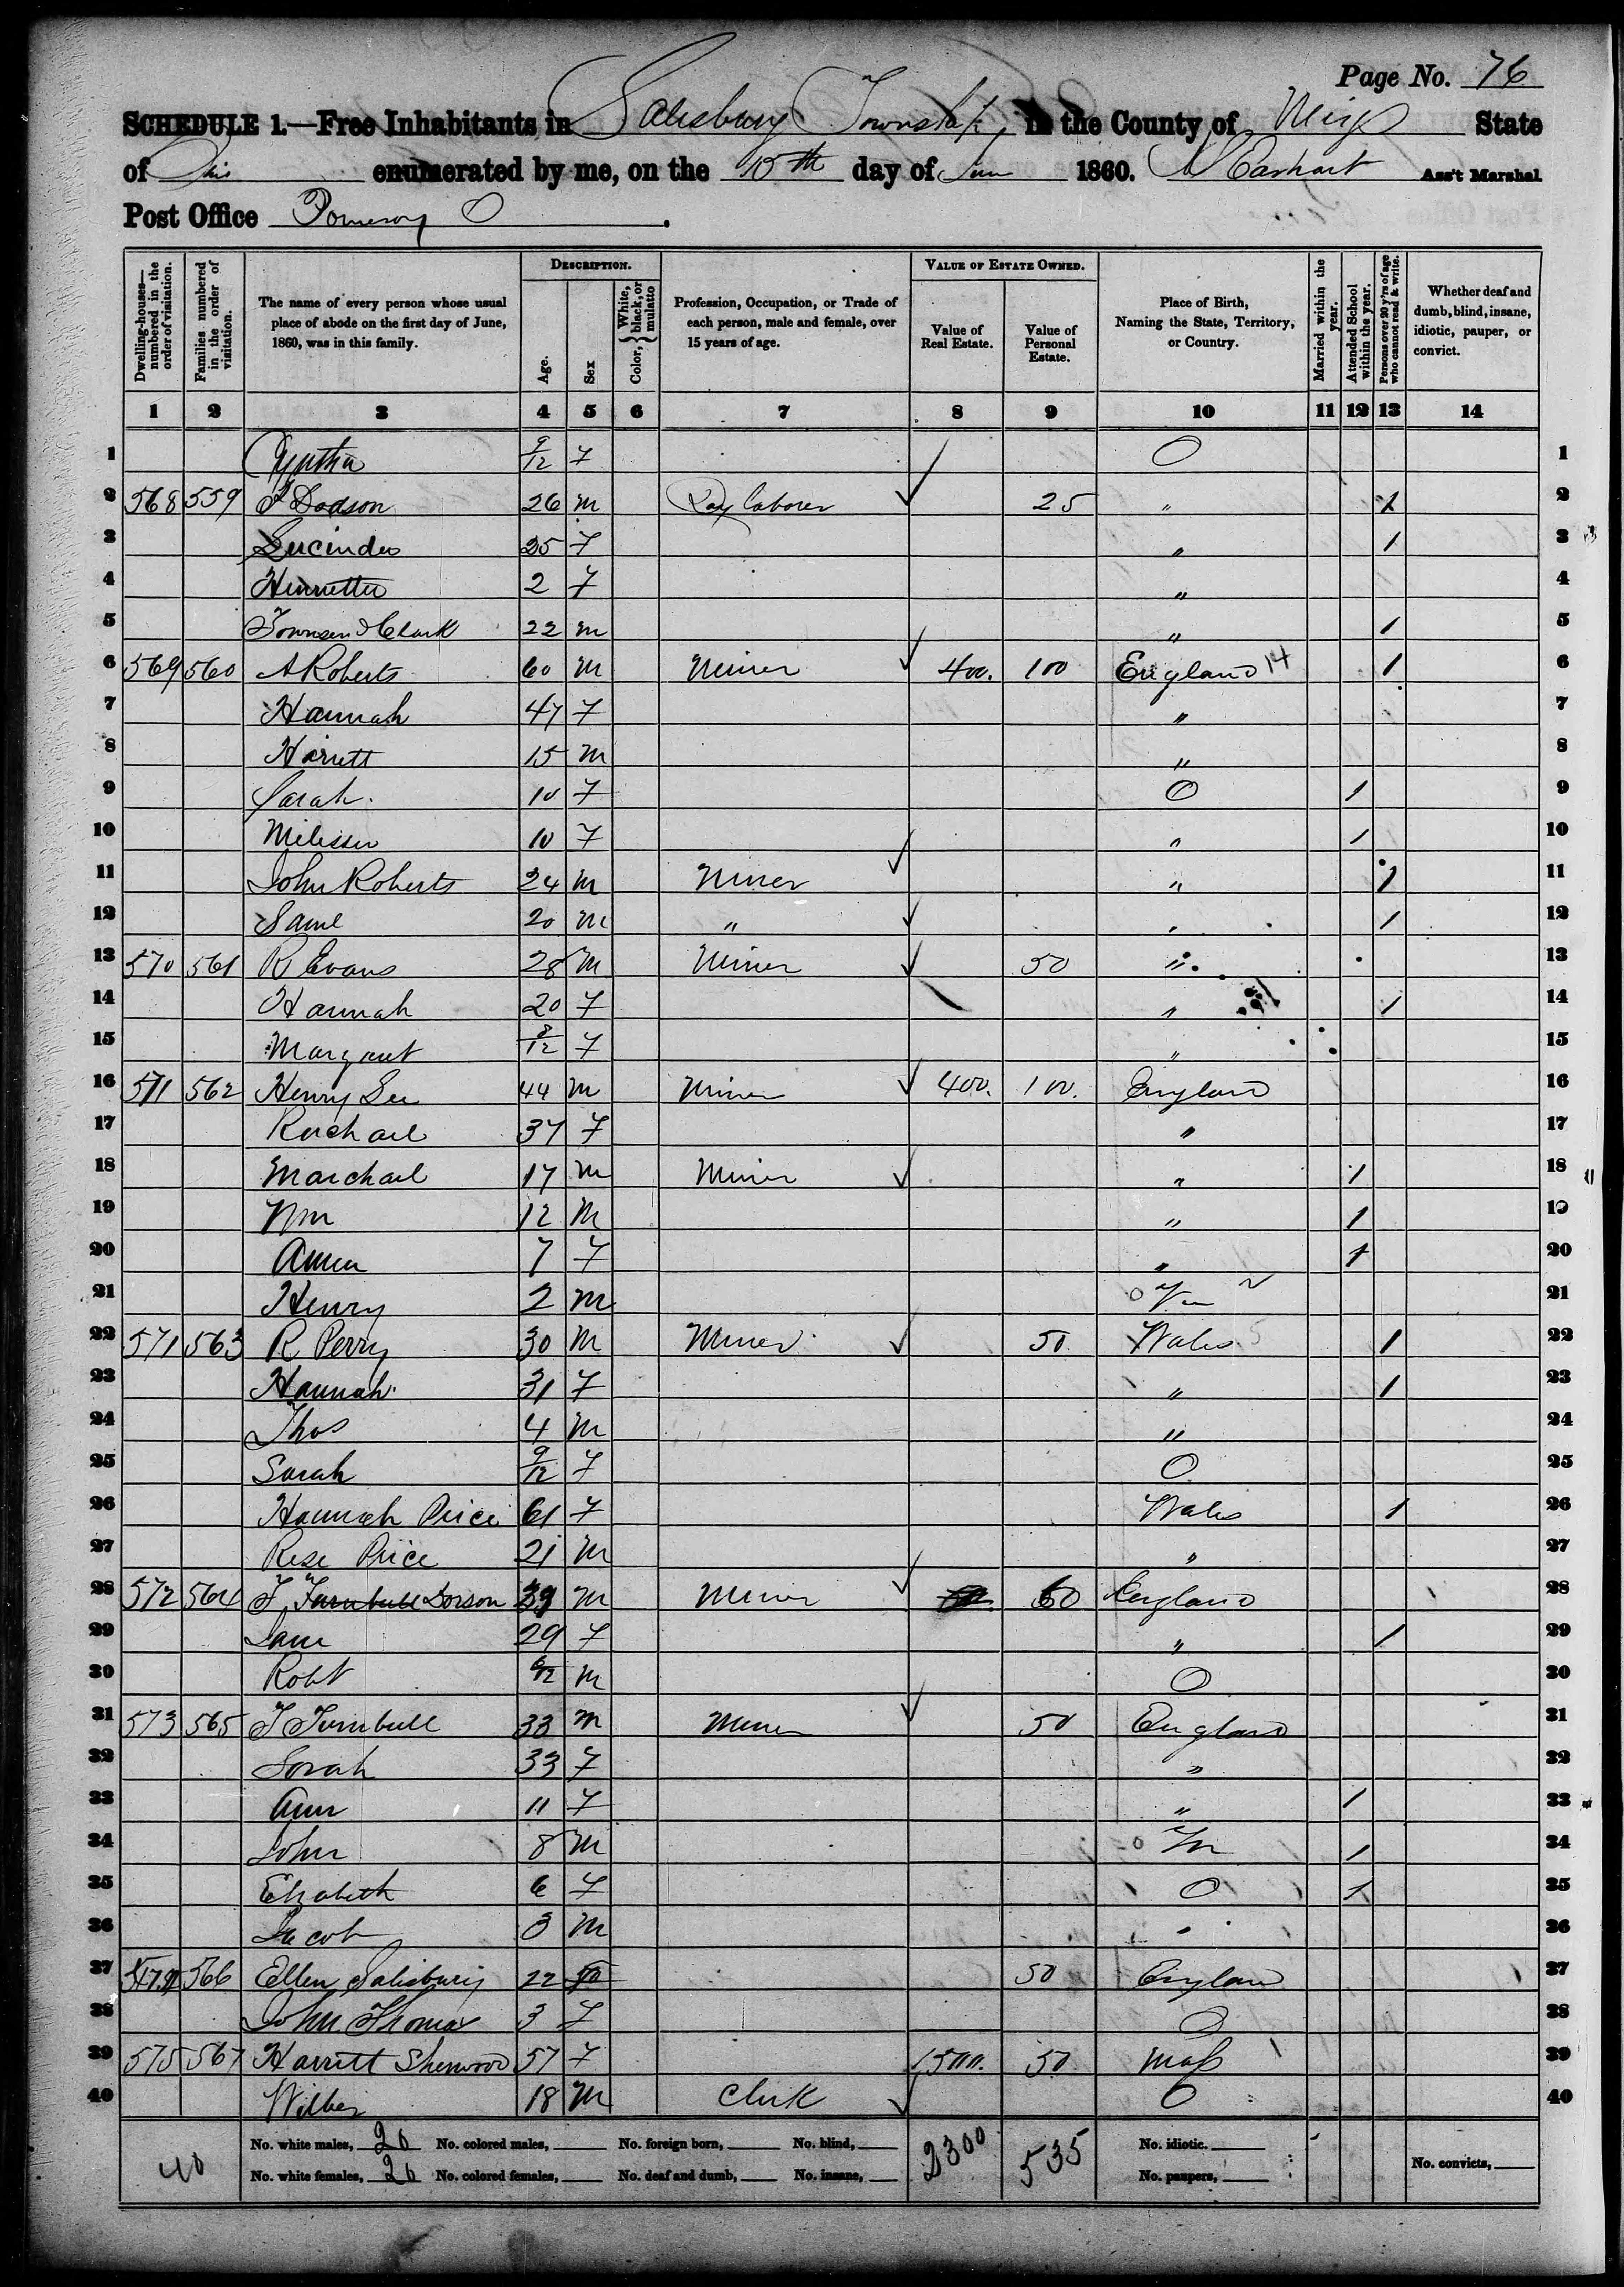 Page No. 76
SCHEDULE 1.—Free Inhabitants in Salisbury Township in the County of Meigs State
of Ohio enumerated by me, on the 15th day of June 1860. Earhart Ass't Marshal
Post Office Pomeroy O.
Dwelling-houses—numbered in the order of visitation.
Families numbered in the order of visitation.
The name of every person whose usual place of abode on the first day of June, 1860, was in this family.
DESCRIPTION.
Age.
Sex
Color, { White, black, or mulatto
Profession, Occupation, or Trade of each person, male and female, over 15 years of age.
VALUE OF ESTATE OWNED.
Value of Real Estate.
Value of Personal Estate.
Place of Birth, Naming the State, Territory, or Country.
Married within the year.
Attended School within the year.
Persons over 20 y'rs of age who cannot read & write.
Whether deaf and dumb, blind, insane, idiotic, pauper, or convict.
1 2 3 4 5 6 7 8 9 10 11 12 13 14
1 Cyntha 9/12 F O 1
2 568 559 F Dodson 26 m Day laborer 25 " 1 2
3 Lucinda 25 F " 1 3
4 Henrietta 2 F " 4
5 Townsend Clark 22 m " 1 5
6 569 560 A Roberts 60 m Miner 400. 100 England 14 1 6
7 Hannah 47 F " 7
8 Harriett 15 m " 8
9 Sarah 10 F O 1 9
10 Melissa 10 F " 1 10
11 John Roberts 24 m Miner " 1 11
12 Saml 20 m " " 1 12
13 570 561 R Evans 28 m Miner 50 " 13
14 Hannah 20 F " 1 14
15 Margaret 8/12 F " 15
16 571 562 Henry Lee 44 m Miner 400. 100. England 16
17 Rachael 37 F " 17
18 Marchael 17 m Miner " 1 18
19 Wm 12 m " 1 19
20 7 F " 1 20
21 Henry 2 m 21
22 571 563 R Perry 30 m Miner 50. Wales 5 1 22
23 Hannah 31 F " 1 23
24 Thos 4 m " 24
25 Sarah 9/12 F O 25
26 Hannah Price 61 F Wales 1 26
27 Rese Price 21 m " 27
28 572 564 F Turnbull Dorson 39 m Miner 60 England 28
29 Jane 29 F " 1 29
30 Robt m O 30
31 573 565 T Turnbull 33 m Miner 50 England 31
32 Sarah 33 F " 32
33 Ann 11 F " 1 33
34 John 8 m 1 34
35 Elizabeth 6 F O 1 35
36 Jacob 3 m " 36
37 574 566 Ellen Salisbury 22 50 England 37
38 John Thomas 3 F O 38
39 575 567 Harriett Sherwood 57 F 1500. 50 Mass 39
40 18 m Clerk O 40
40 No. white males, 20 No. colored males, No. foreign born, No. blind, 2300 535 No. idiotic.
No. white females, 20 No. colored females, No. deaf and dumb, No. insane, No. paupers, No. convicts,